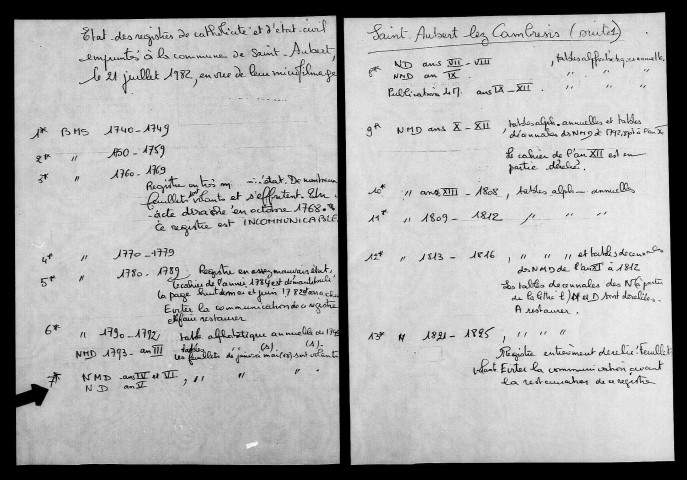 Etat des registres de catholicité et d'état-civil
empruntés à la commune de Saint-Aubert,
le 21 juillet 1982, en vue de leur microfilmage
1* BMS 1740-1749
2* " 1750-1759
3* " 1760-1769
Registre en très m état. De nombreux
feuillets volants et s'effritent. Un
acte déraste en octobre 1768.
Ce registre est INCOMMUNICABLE
4* " 1770-1779
5* " 1780-1789 Registre en assez mauvais état.
Le cahier de l'année 1784 est
la page de mai et juin 1782
Eviter la communication de ce registre
et faire restaurer
6* " 1790-1792, table alphabétique annuelle de
NMD 1793-an III tables " (s) (s)-
les feuillets de janvier mai sont volants
7* NMD ans IV et VI, " " " "
ND an V
Saint Aubert lez Cambresis (suite)
8* ND ans VII-VIII, tables alphabétiques annuelles.
NMD an IX " " "
Publications de M. ans IX-XII " " "
9* NMD ans X-XII, tables alph. annuelles et tables
décennales des NMD de 1792, sept à l'an X
Le cahier de l'an XII est en
partie dérelié.
10* " ans XIII-1808, tables alph- annuelles
11* " 1809-1812 " " "
12* " 1813-1816, " " " et tables décennales
des NMD de l'an XI à 1812
Les tables décennales des N (partie
de la lettre L) M et D sont déreliées.
A restaurer.
13* " 1821-1825, " " " "
Registre entièrement dérelié. Feuillets
volants. Eviter la communication avant
la restauration de ce registre